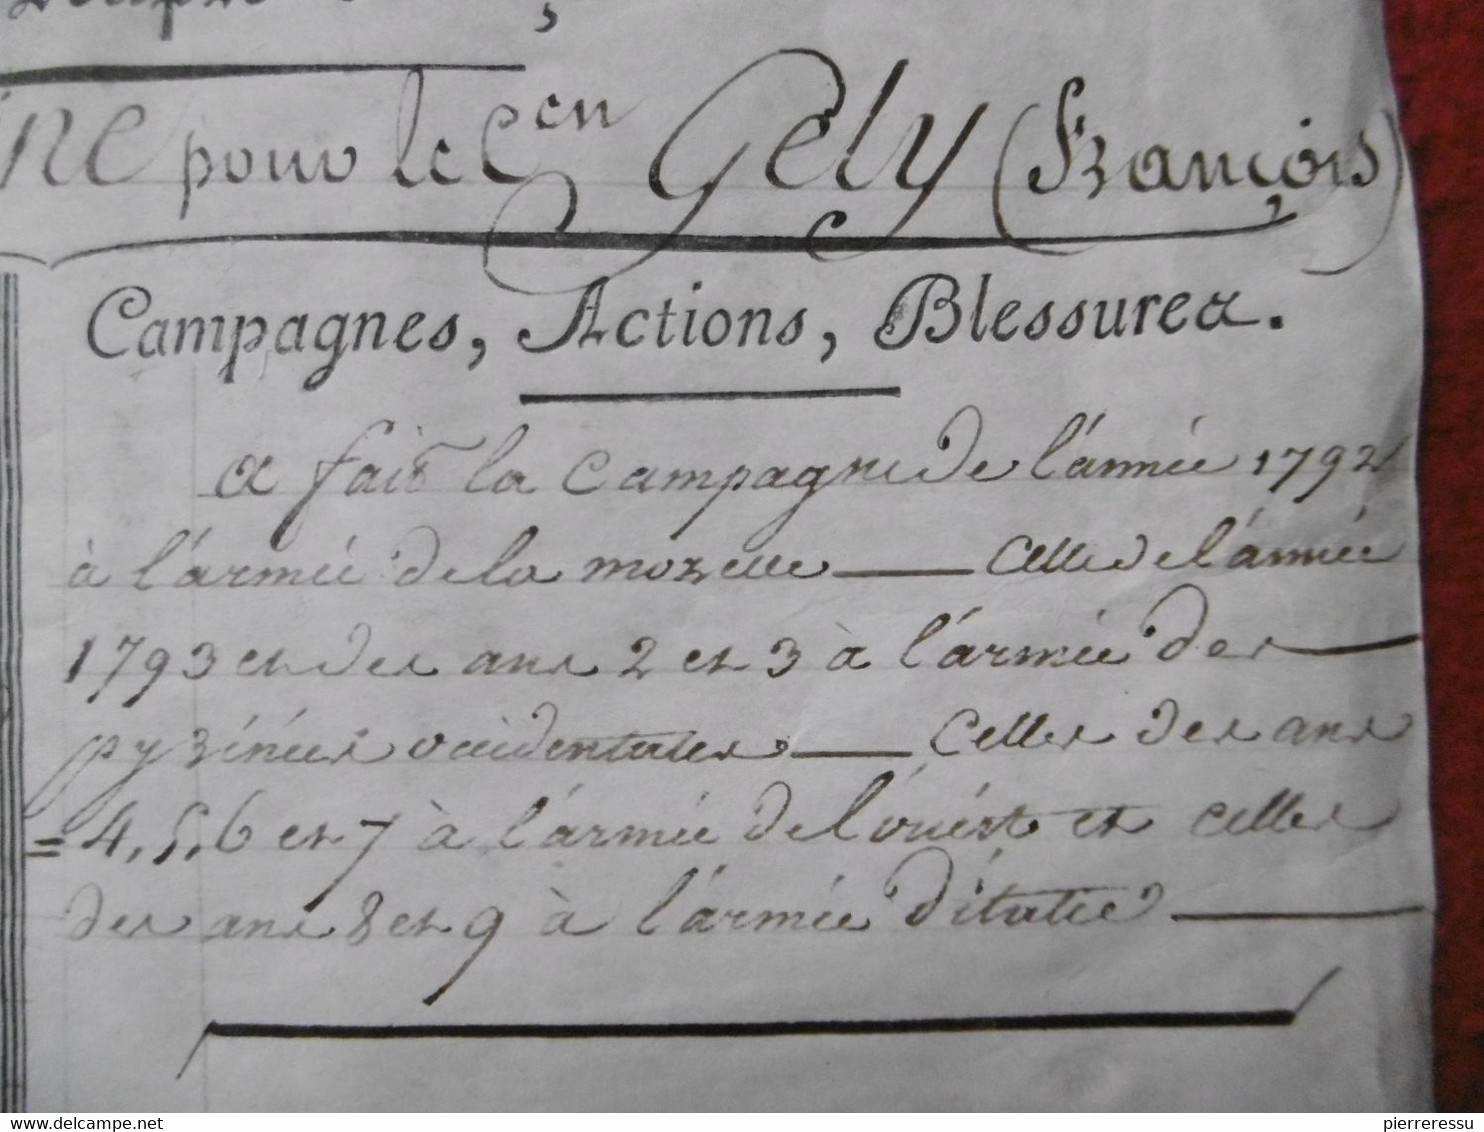 pour le Cen Gély (François)
Campagnes, Actions, Blessures.
a fait la Campagne de l'année 1792
à l'armée de la mozelle — Celle de l'année
1793 et des ans 2 et 3 à l'armée des —
pyrénées occidentales — Celles des ans
= 4, 5, 6 et 7 à l'armée de l'ouest et celles
des ans 8 et 9 à l'armée d'italie —
www.delcampe.net
pierreressu